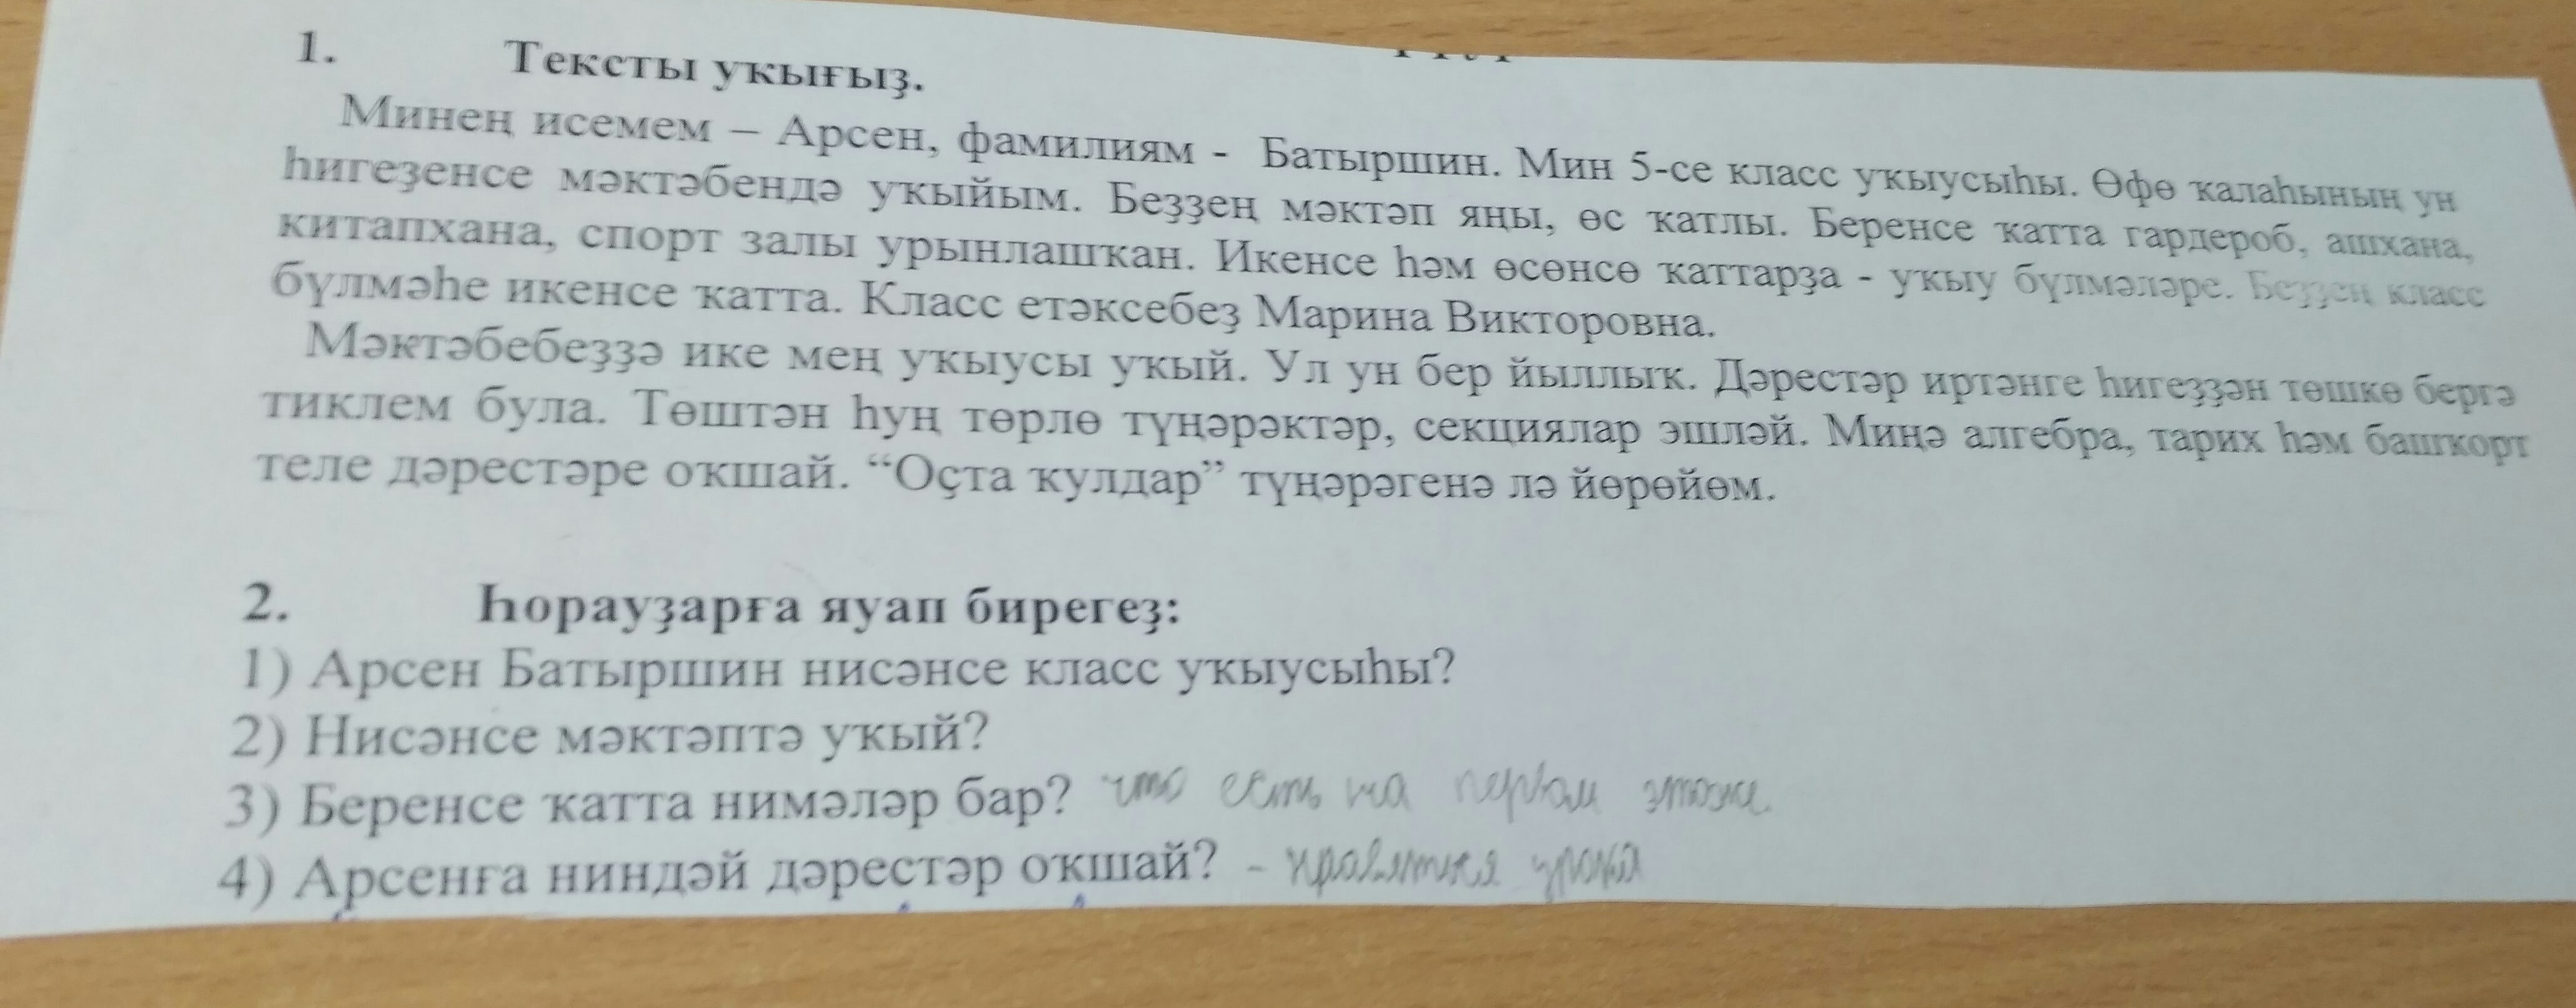 1. Тексты уҡығыҙ.
Минең исемем – Арсен, фамилиям - Батыршин. Мин 5-се класс уҡыусыһы. Өфө ҡалаһының ун
һигеҙенсе мәктәбендә уҡыйым. Беҙҙең мәктәп яңы, өс ҡатлы. Беренсе ҡатта гардероб, ашхана,
китапхана, спорт залы урынлашҡан. Икенсе һәм өсөнсө ҡаттарҙа - уҡыу бүлмәләре. Беҙҙең класс
бүлмәһе икенсе ҡатта. Класс етәксебеҙ Марина Викторовна.
Мәктәбебеҙҙә ике мең уҡыусы уҡый. Ул ун бер йыллыҡ. Дәрестәр иртәнге һигеҙҙән төшкө бергә
тиклем була. Төштән һуң төрлө түңәрәктәр, секциялар эшләй. Миңә алгебра, тарих һәм башҡорт
теле дәрестәре оҡшай. “Оҫта ҡулдар” түңәрәгенә лә йөрөйөм.
2. Һорауҙарға яуап бирегеҙ:
1) Арсен Батыршин нисәнсе класс уҡыусыһы?
2) Нисәнсе мәктәптә уҡый?
3) Беренсе ҡатта нимәләр бар? что есть на первом этаже
4) Арсенға ниндәй дәрестәр оҡшай? - нравятся уроки